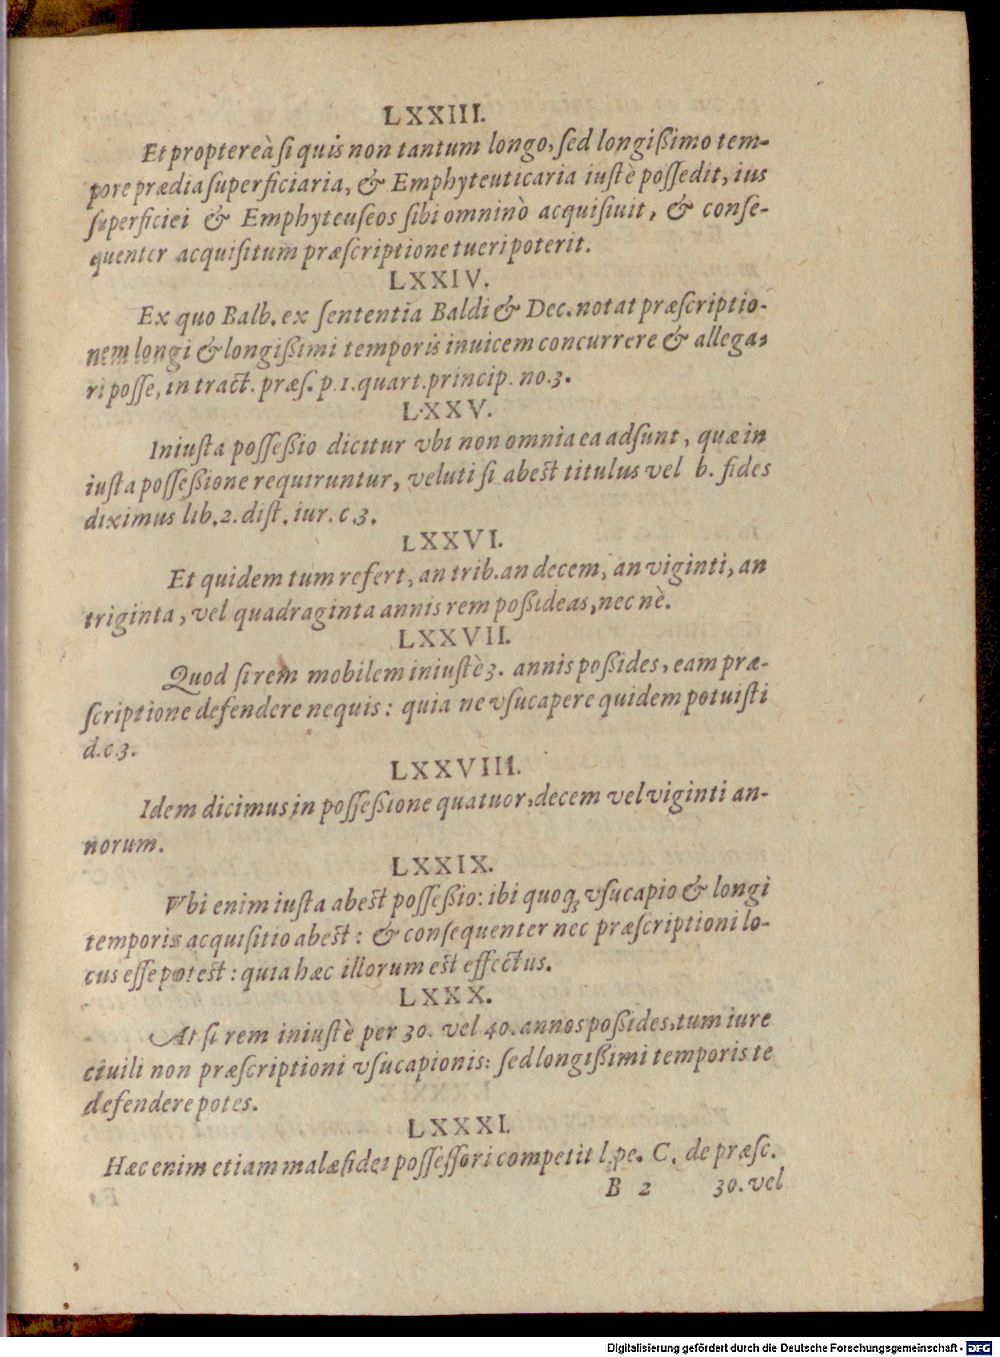 LXXIII.
Et proptereà ſi quis non tantum longo, ſed longißimo tem-
pore prædia ſuperficiaria, & Emphyteuticaria iuſtè poſſedit, ius
ſuperficiei & Emphyteuſeos ſibi omninò acquiſiuit, & conſe-
quenter acquiſitum præſcriptione tueri poterit.
LXXIV.
Ex quo Balb. ex ſententia Baldi & Dec. notat præſcriptio-
nem longi & longißimi temporis inuicem concurrere & allega-
ri poſſe, in tract. præſ. p. 1. quart. princip. no. 3.
LXXV.
Iniuſta poſſeßio dicitur vbi non omnia ea adſunt, quæ in
iuſta poſſeßione requiruntur, veluti ſi abest titulus vel b. fides
diximus lib. 2. diſt. iur. c. 3.
LXXVI.
Et quidem tum refert, an trib. an decem, an viginti, an
triginta, vel quadraginta annis rem poßideas, nec nè.
LXXVII.
Quod ſi rem mobilem iniuſtè 3. annis poßides, eam præ-
ſcriptione defendere nequis: quia ne vſucapere quidem potuiſti
d. c. 3.
LXXVIII.
Idem dicimus in poſſeßione quatuor, decem vel viginti an-
norum.
LXXIX.
Vbi enim iuſta abest poſſeßio: ibi quoq; vſucapio & longi
temporis acquiſitio abest: & conſequenter nec præſcriptioni lo-
cus eſſe potest: quia hæc illorum est effectus.
LXXX.
At ſi rem iniuſtè per 30. vel 40. annos poßides, tum iure
ciuili non præſcriptioni vſucapionis: ſed longißimi temporis te
defendere potes.
LXXXI.
Hæc enim etiam malæ fidei poſſeſſori competit l. pe. C. de præſc.
B 2 30. vel
Digitalisierung gefördert durch die Deutsche Forschungsgemeinschaft - DFG